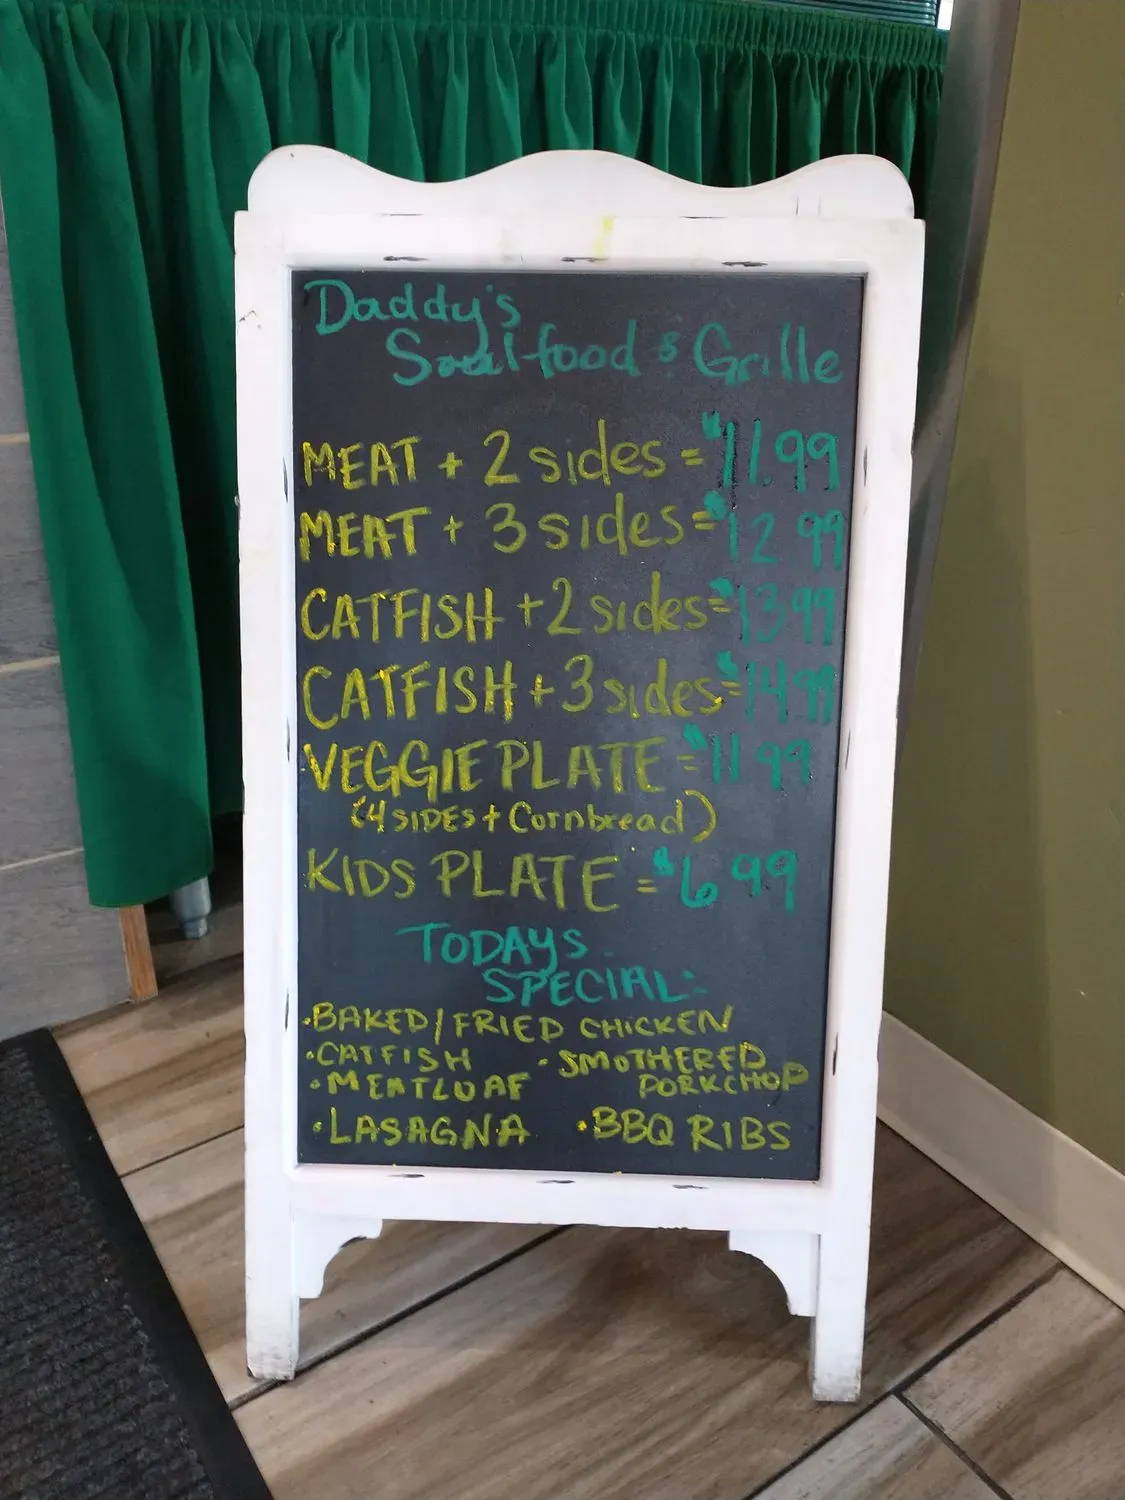 Daddy's
Soulfood & Grille
MEAT + 2 sides = $11.99
MEAT + 3 sides = $12.99
CATFISH + 2 sides = $13.99
CATFISH + 3 sides = $14.99
VEGGIE PLATE = $11.99
(4 SIDES + Cornbread)
KIDS PLATE = $6.99
TODAYS
SPECIAL:
• BAKED/FRIED CHICKEN
• CATFISH • SMOTHERED
PORKCHOP
• MEATLOAF
• LASAGNA • BBQ RIBS